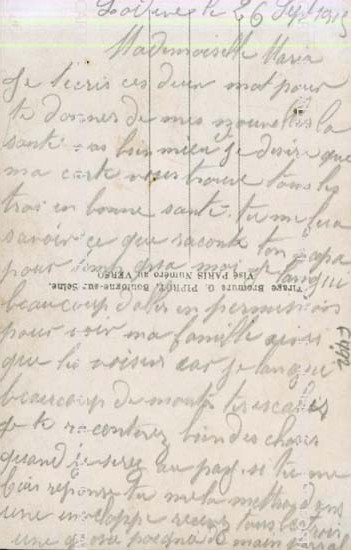 le 26 Sept 1915
Mademoiselle Maria
Je t'ecris ces deux mot pour
te donner de mes nouvelles la
santé vas bien mieux je desire que
ma carte vous trouve tous les
trois en bonne santé tu me fera
savoir ce que raconte ton papa
pour moi je langui
Tirage Bromure O. PIPROT, Boulogne-sur-Seine.
Visé PARIS Numéro au VERSO
beaucoup d'aller en permissions
pour voir ma famille ainsi
que les voisins car je langui
beaucoup de monté tes escaliés
je te raconterez bien des choses
quand je serez au pay si tu me
fais reponse tu me la mettra dans
une enveloppe recevez tous les trois
une grosse poignée de main